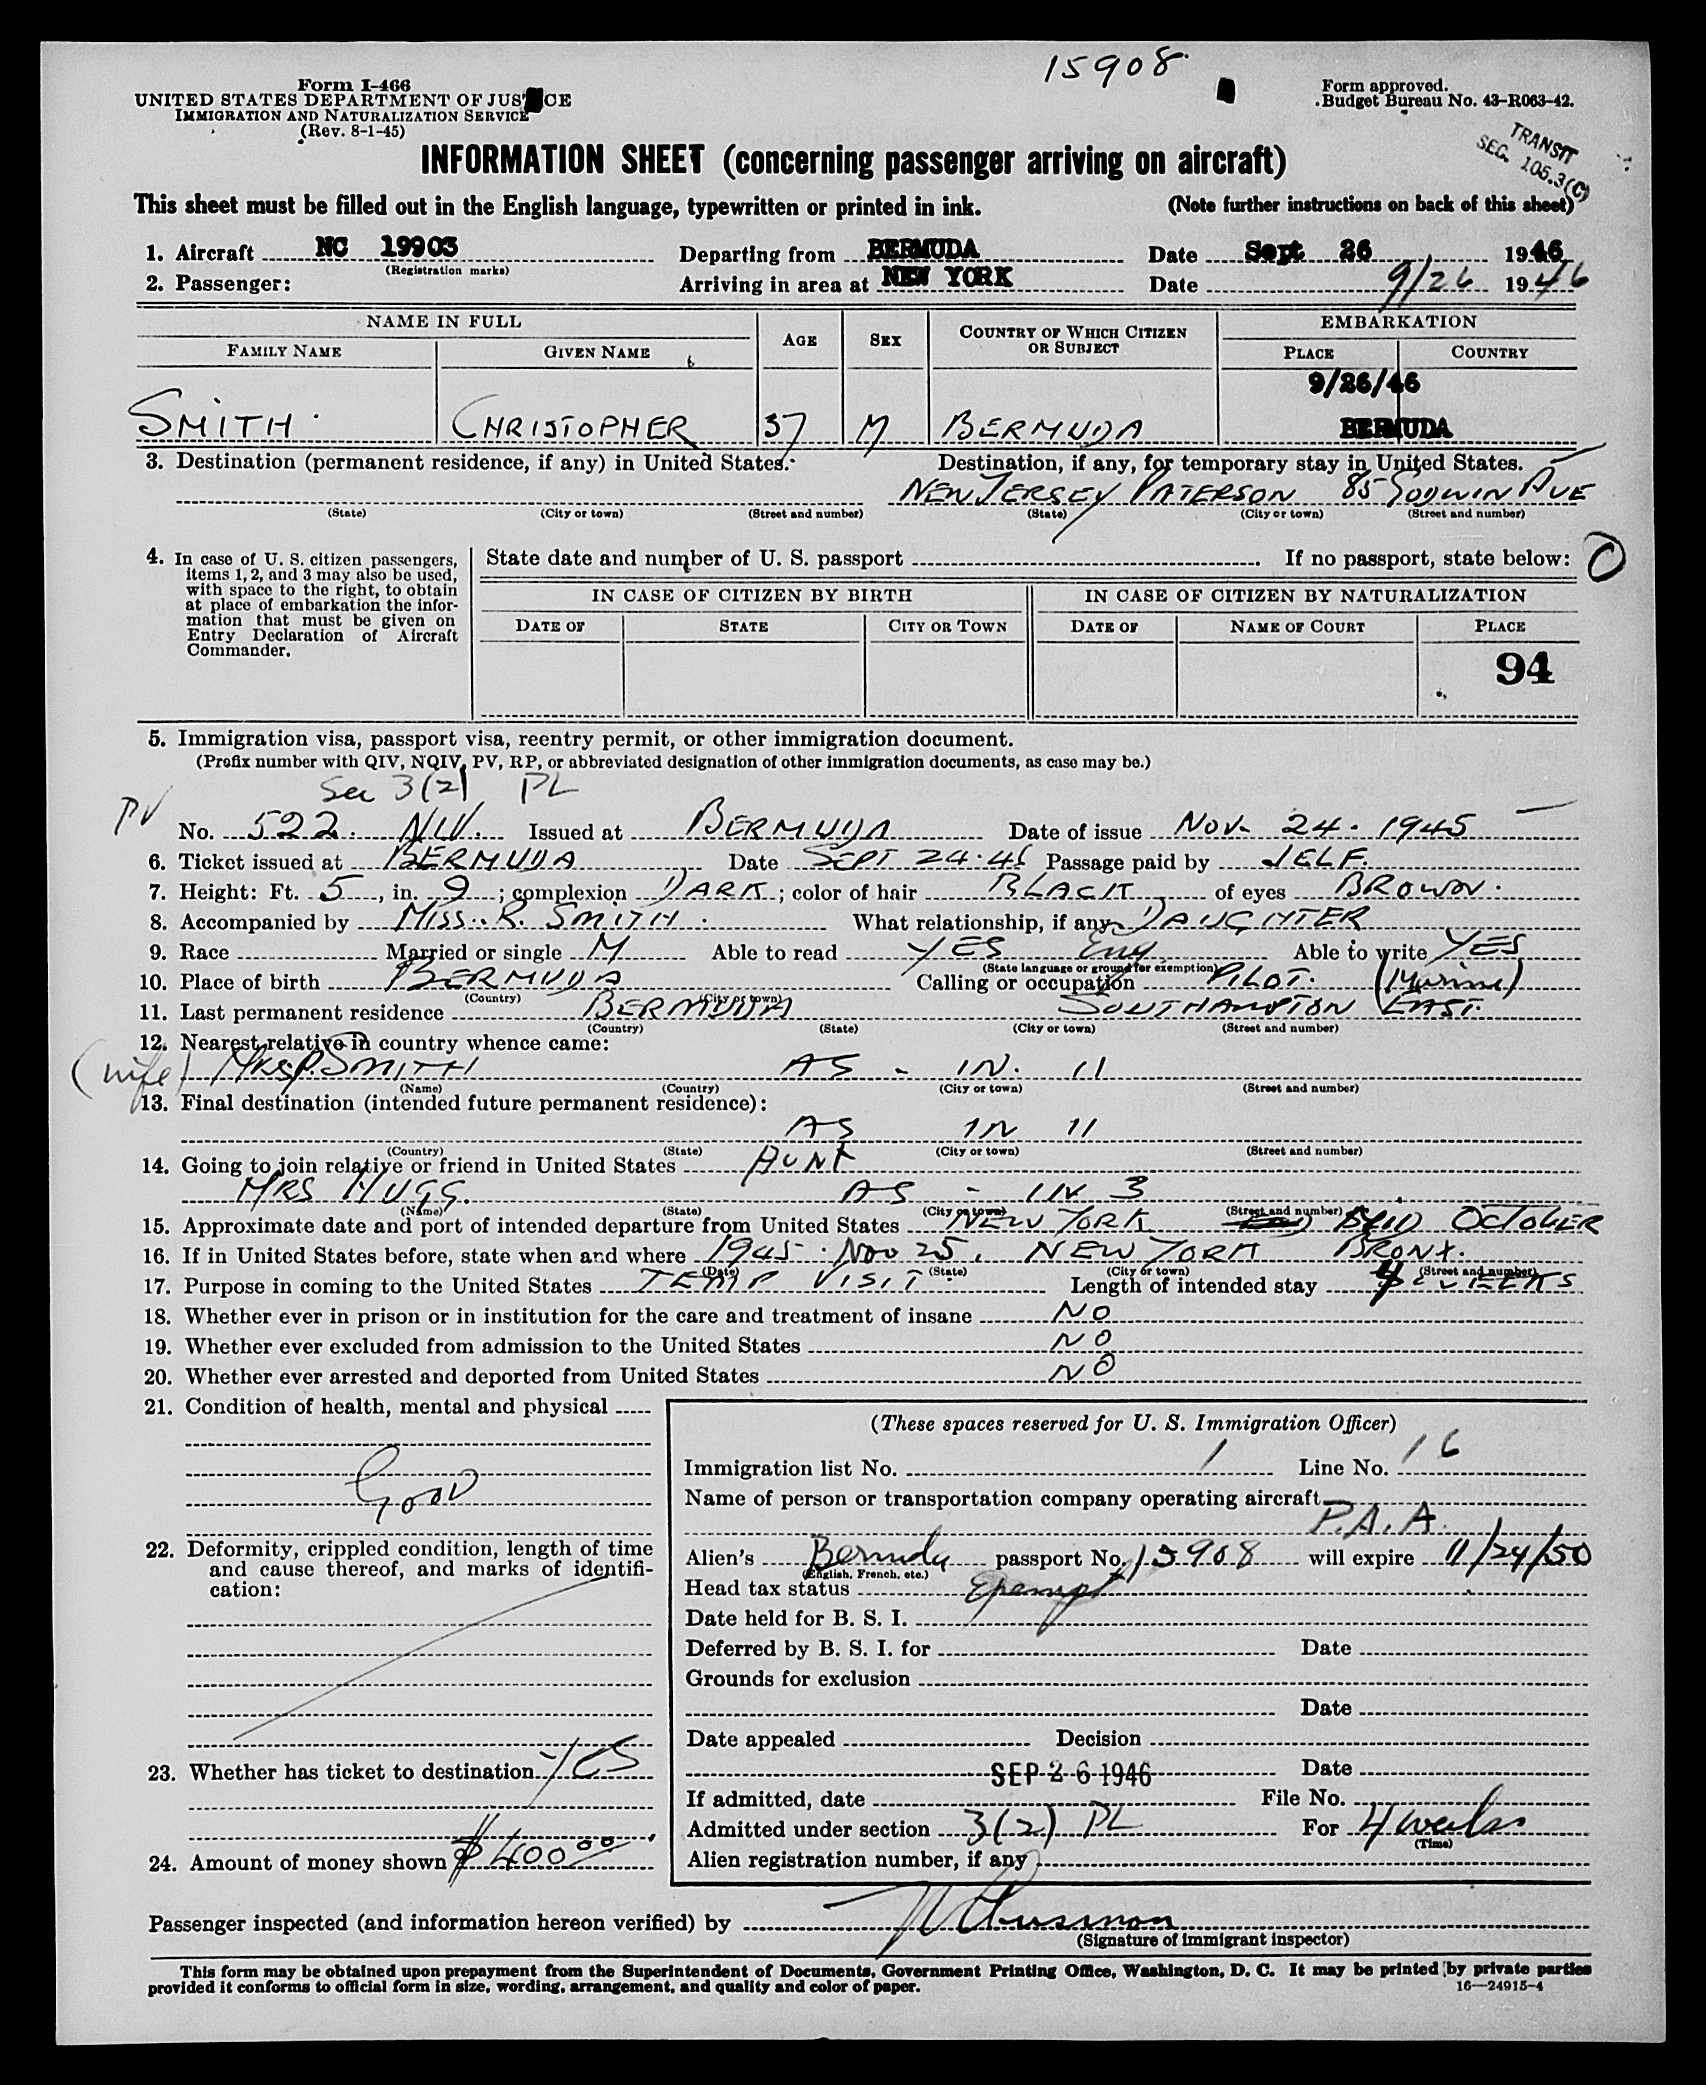 15908
Form I-466
UNITED STATES DEPARTMENT OF JUSTICE
IMMIGRATION AND NATURALIZATION SERVICE
(Rev. 8-1-45)
Form approved.
Budget Bureau No. 43-R063-42.
TRANSIT
SEC. 105.3(C)
INFORMATION SHEET (concerning passenger arriving on aircraft)
This sheet must be filled out in the English language, typewritten or printed in ink. (Note further instructions on back of this sheet)
1. Aircraft NC 19903 Departing from BERMUDA Date Sept 26 1946
(Registration marks)
2. Passenger: Arriving in area at NEW YORK Date 9/26 1946
NAME IN FULL AGE SEX COUNTRY OF WHICH CITIZEN OR SUBJECT EMBARKATION
FAMILY NAME GIVEN NAME PLACE COUNTRY
9/26/46
SMITH CHRISTOPHER 37 M BERMUDA BERMUDA
3. Destination (permanent residence, if any) in United States. Destination, if any, for temporary stay in United States.
NEW JERSEY PATERSON 85 GODWIN AVE
(State) (City or town) (Street and number) (State) (City or town) (Street and number)
4. In case of U. S. citizen passengers, items 1, 2, and 3 may also be used, with space to the right, to obtain at place of embarkation the information that must be given on Entry Declaration of Aircraft Commander.
State date and number of U. S. passport If no passport, state below: O
IN CASE OF CITIZEN BY BIRTH IN CASE OF CITIZEN BY NATURALIZATION
DATE OF STATE CITY OR TOWN DATE OF NAME OF COURT PLACE
94
5. Immigration visa, passport visa, reentry permit, or other immigration document.
(Prefix number with QIV, NQIV, PV, RP, or abbreviated designation of other immigration documents, as case may be.)
Sec 3(2) PL
PV No. 522. NIV. Issued at BERMUDA Date of issue NOV- 24. 1945
6. Ticket issued at BERMUDA Date SEPT 24.46 Passage paid by SELF.
7. Height: Ft. 5, in. 9; complexion DARK; color of hair BLACK of eyes BROWN.
8. Accompanied by MISS. R. SMITH. What relationship, if any DAUGHTER
9. Race Married or single M Able to read YES Eng Able to write YES
(State language or ground for exemption)
10. Place of birth BERMUDA Calling or occupation PILOT. (Marine)
(Country) (City or town)
11. Last permanent residence BERMUDA SOUTHAMPTON EAST.
(Country) (State) (City or town) (Street and number)
12. Nearest relative in country whence came:
(wife) MRS P. SMITH AS - IN. 11
(Name) (Country) (City or town) (Street and number)
13. Final destination (intended future permanent residence):
AS IN 11
(Country) (State) (City or town) (Street and number)
14. Going to join relative or friend in United States AUNT
MRS HUGG. AS - IN 3
(Name) (State) (City or town) (Street and number)
15. Approximate date and port of intended departure from United States NEW YORK OCTOBER
16. If in United States before, state when and where 1945. NOV 25. NEW YORK BRONX.
(Date) (State) (City or town) (Street and number)
17. Purpose in coming to the United States TEMP VISIT Length of intended stay 4 WEEKS
18. Whether ever in prison or in institution for the care and treatment of insane NO
19. Whether ever excluded from admission to the United States NO
20. Whether ever arrested and deported from United States NO
21. Condition of health, mental and physical
GOOD
22. Deformity, crippled condition, length of time and cause thereof, and marks of identification:
23. Whether has ticket to destination YES
24. Amount of money shown $400.00
(These spaces reserved for U. S. Immigration Officer)
Immigration list No. 1 Line No. 16
Name of person or transportation company operating aircraft
P.A.A.
Alien's Bermuda passport No. 15908 will expire 11/24/50
(English, French, etc.)
Head tax status Exempt
Date held for B. S. I.
Deferred by B. S. I. for Date
Grounds for exclusion
Date
Date appealed Decision
SEP 26 1946 Date
If admitted, date File No.
Admitted under section 3(2) PL For 4 weeks
(Time)
Alien registration number, if any
Passenger inspected (and information hereon verified) by
(Signature of immigrant inspector)
This form may be obtained upon prepayment from the Superintendent of Documents, Government Printing Office, Washington, D. C. It may be printed by private parties
provided it conforms to official form in size, wording, arrangement, and quality and color of paper. 16—24915-4